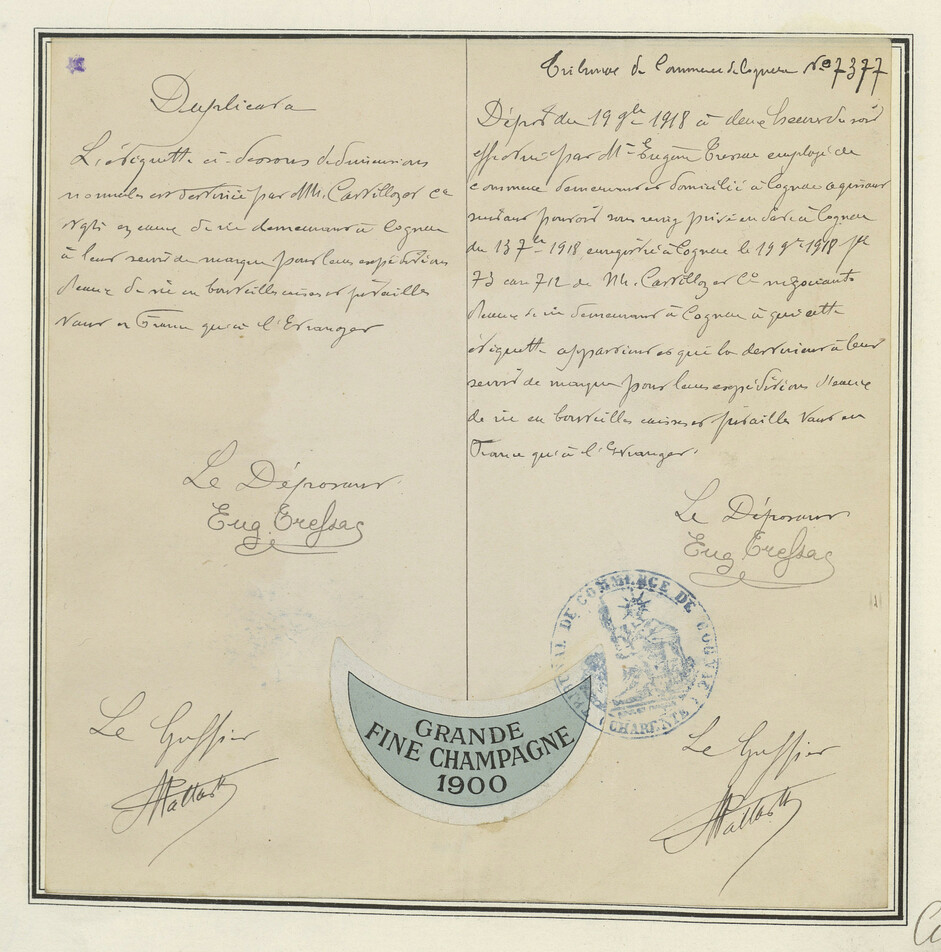 Duplicata
L'étiquette ci-dessous de dimensions
normales est destinée par MM. Castillon et Cie
Ngts en eaux de vie demeurant à Cognac
à leur servir de marque pour leurs expéditions
d'eaux de vie en bouteilles caisses et futailles
tant en France qu'à l'Etranger
Le Déposant
Eug. Tressac
Le Greffier
Tribunal de Commerce de Cognac No 7377
Dépôt du 19 9bre 1918 à deux heures du soir
effectué par Mr Eugène Tressac employé de
commerce demeurant et domicilié à Cognac agissant
suivant pouvoir sous seing privé en date à Cognac
du 13 7bre 1918 enregistré à Cognac le 19 9bre 1918 fo
73 case 712 de MM. Castillon et Cie négociants
d'eaux de vie demeurant à Cognac à qui cette
étiquette appartient et qui la destinent à leur
servir de marque pour leurs expéditions d'eaux
de vie en bouteilles caisses et futailles tant en
France qu'à l'Etranger.
Le Déposant
Eug. Tressac
TRIBUNAL DE COMMERCE DE COGNAC
(CHARENTE)
Le Greffier
GRANDE
FINE CHAMPAGNE
1900